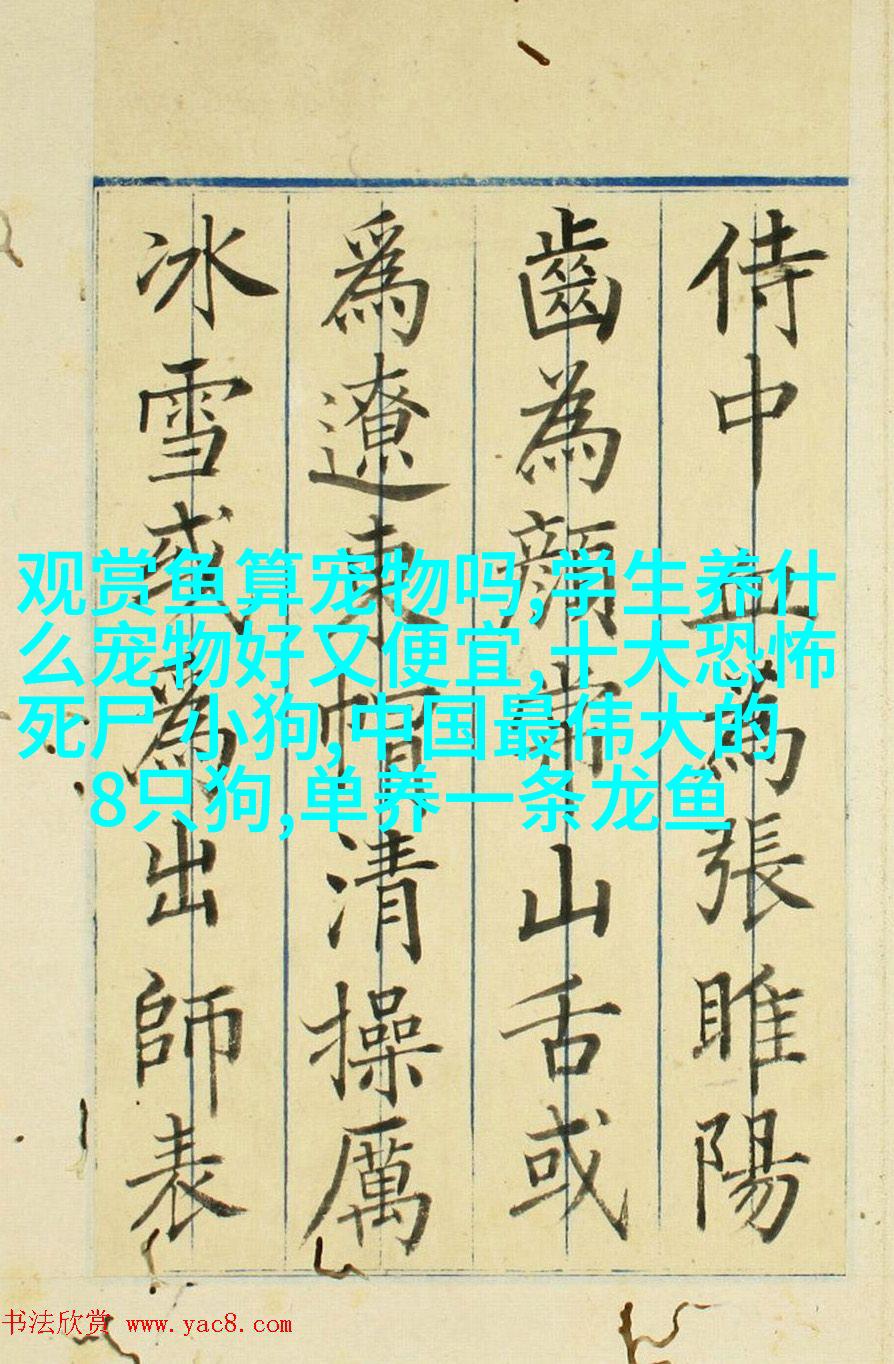 侍中血為張睢陽
齒為顏常山舌或
爲遼東帽清操厲
冰雪或為出師表
观赏鱼算宠物吗,学生养什
么宠物好又便宜,十大恐怖
死尸 小狗,中国最伟大的
8只狗,单养一条龙鱼
书法欣赏 www.yac8.com